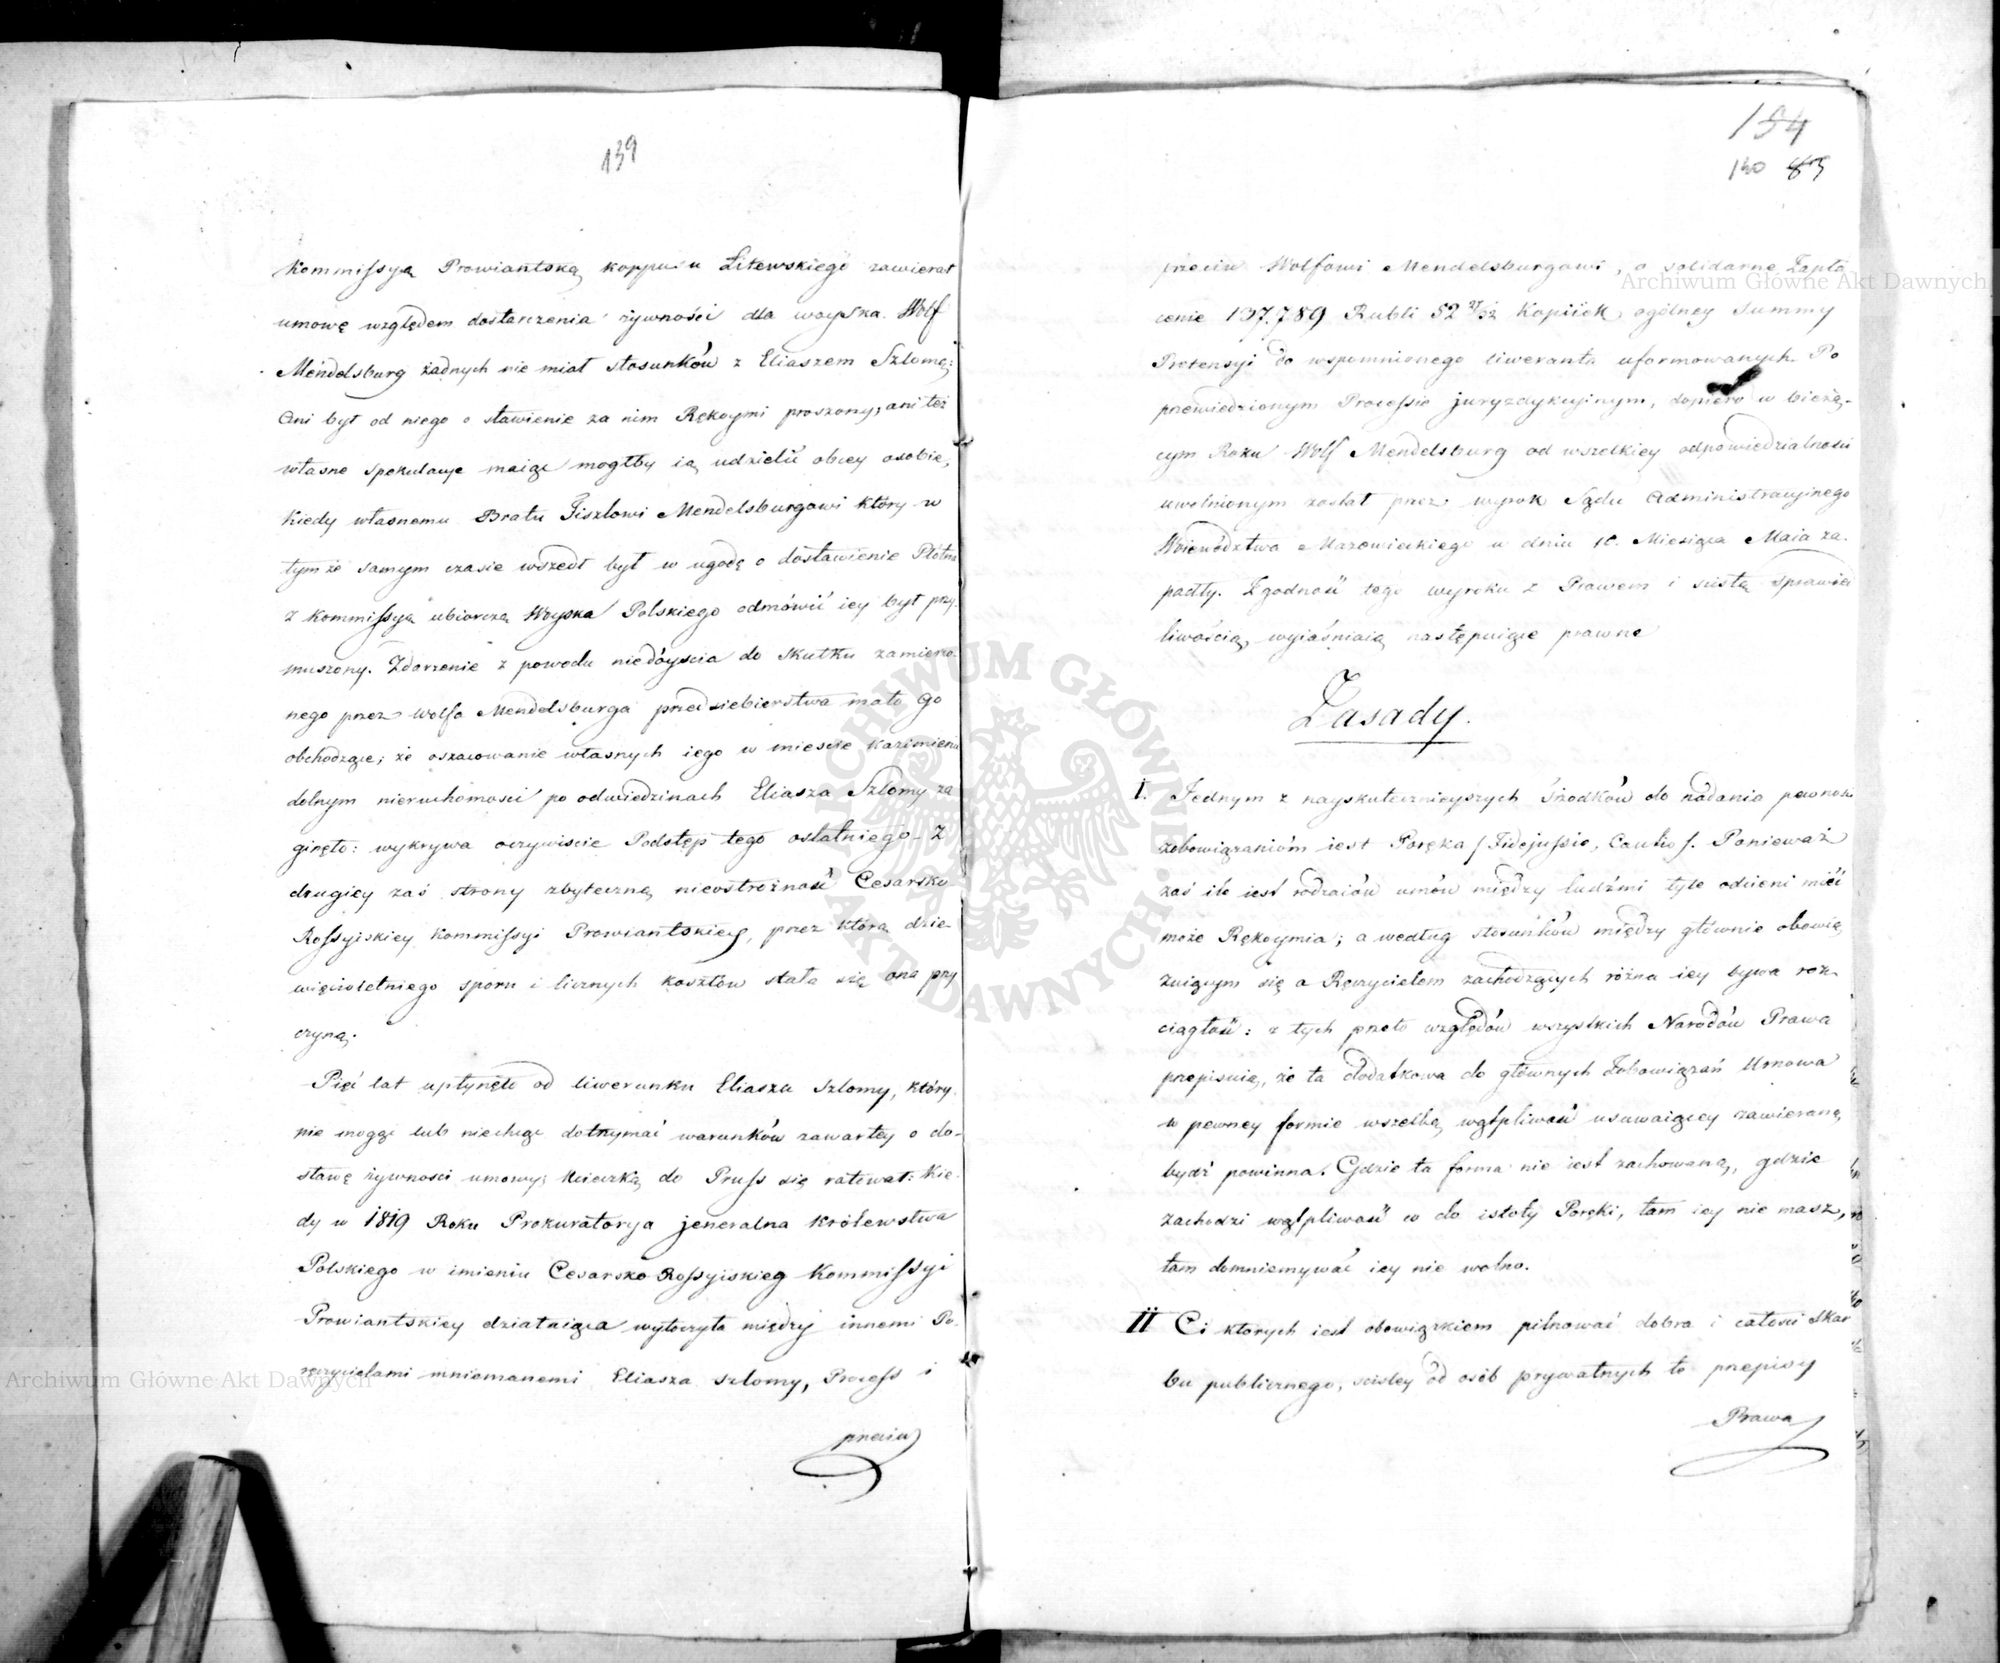 139
Kommissyą Prowiantską korpusu Litewskiego zawierał
umowę względem dostarczenia żywności dla woyska. Wolf
Mendelsburg żadnych nie miał stosunków z Eliaszem Szlomą;
Ani był od niego o stawienie za nim Rękoymi proszony, ani też
własne spekulacye maiąc mogłby ią udzielić obcey osobie,
kiedy własnemu Bratu Fiszlowi Mendelsburgowi który w
tymże samym czasie wszedł był w ugodę o dostawienie Płótna
z Kommissyą ubiorczą Woyska Polskiego odmówić iey był przy-
muszony. Zdarzenie z powodu niedóyscia do skutku zamierzo-
nego przez Wolfa Mendelsburga przedsiebierstwa mało go
obchodzące; że oszacowanie własnych iego w mieście Kazimierzu
dolnym nieruchomości po odwiedzinach Eliasza Szlomy za
ginęło: wykrywa oczywiście Podstęp tego ostatniego - Z
drugiey zaś strony zbyteczną nieostrożność Cesarsko
Rossyiskiey Kommissyi Prowiantskiey, przez którą dzie-
więcioletniego sporu i licznych kosztów stała się ona przy
czyną.
Pięć lat upłynęło od liwerunku Eliasza Szlomy, który
nie mogąc lub niechcąc dotrzymać warunków zawartey o do-
stawę żywności umowy; ucieczką do Pruss się ratował: Kie-
dy w 1819 Roku Prokuratorya jeneralna Królewstwa
Polskiego w imieniu Cesarsko Rossyiskiey Kommissyi
Prowiantskiey działaiąca wytoczyła między innemi Po-
ręczycielami mniemanemi Eliasza Szlomy, Process i
przeciw
154
140 83
przeciw Wolfowi Mendelsburgowi, o solidarne Zapła
cenie 137.789 Rubli 52 27/32 Kopiiek ogólney Summy
Pretensyi do wspomnionego liweranta uformowanych. Po
przewiedzionym Processie juryzdykcyinym, dopiero w bieżą-
cym Roku Wolf Mendelsburg od wszelkiey odpowiedzialności
uwolnionym został przez wyrok Sądu Administracyjnego
Woiewództwa Mazowieckiego w dniu 10. Miesiąca Maia za-
padły. Zgodność tego wyroku z Prawem i scisłą sprawied
liwością, wyiaśniaią następuiące prawne
Zasady.
I. Jednym z nayskutecznieyszych środków do nadania pewności
zobowiązanióm iest Poręka / Fidejussio, Cautio /. Ponieważ
zaś ile iest rodzaiów umów między ludźmi tyle odcieni mieć
może Rękoymia; a według stosunków między głównie obowią
zuiącym się a Ręczycielem zachodzących różna iey bywa roz-
ciągłość: z tych przeto względów wszystkich Narodów Prawa
przepisuią, że ta dodatkowa do głównych Zobowiązań Umowa
w pewney formie wszelką wątpliwość usuwaiącey zawieraną
bydź powinna. Gdzie ta forma nie iest zachowaną, gdzie
zachodzi wątpliwość co do istoty Poręki, tam iey nie masz,
tam domniemywać iey nie wolno.
II Ci ktorych iest obowiązkiem pilnować dobra i całości Skar
bu publicznego, scisley od osób prywatnych te przepisy
Prawa
Archiwum Główne Akt Dawnych
Archiwum Główne Akt Dawnych
ARCHIWUM GŁÓWNE AKT DAWNYCH